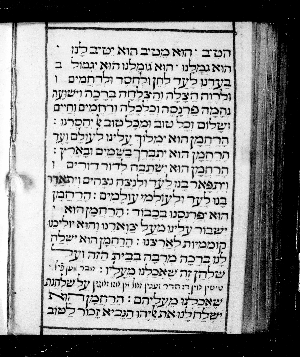 הטיב · הוא מטיב הוא ייטיב לנו
הוא גמלנו · הוא גומלנו הוא יגמול
בעדינו לעד לחן ולחסד ולרחמים
ולרוח הצלה והצלחה ברכה וישועה
נחמה פרנסה וכלכלה ורחמים וחיים
ושלום וכל טוב ומכל טוב יחסרנו :
הרחמן הוא ימלוך עלינו לעולם ועד
הרחמן הוא יתברך בשמים ובארץ :
הרחמן הוא ישתבח לדור דורים
ויתפאר בנו לעד ולנצח נצחים ויתהדר
בנו לעד ולעולמי עולמים : הרחמן
הוא יפרנסנו בכבוד : הרחמן הוא
ישבור עלינו מעל צוארנו והוא יוליכנו
קוממיות לארצנו : הרחמן הוא ישלח
לנו ברכה מרבה בבית הזה ועל
שלחן זה שאכלנו מעליו :
על שלחנות
שאכלנו מעליהם : הרחמן הוא
ישלח לנו את אליהו הנביא זכור לטוב